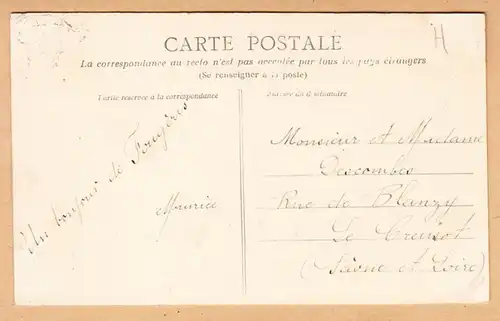 H
CARTE POSTALE
La correspondance au recto n'est pas acceptée par tous les pays étrangers
(Se renseigner à la poste)
Partie réservée à la correspondance
Adresse du destinataire
Un bonjour de Fougères
Maurice
Monsieur et Madame
Descombes
Rue de Blanzy
Le Creusot
(Saône et Loire)